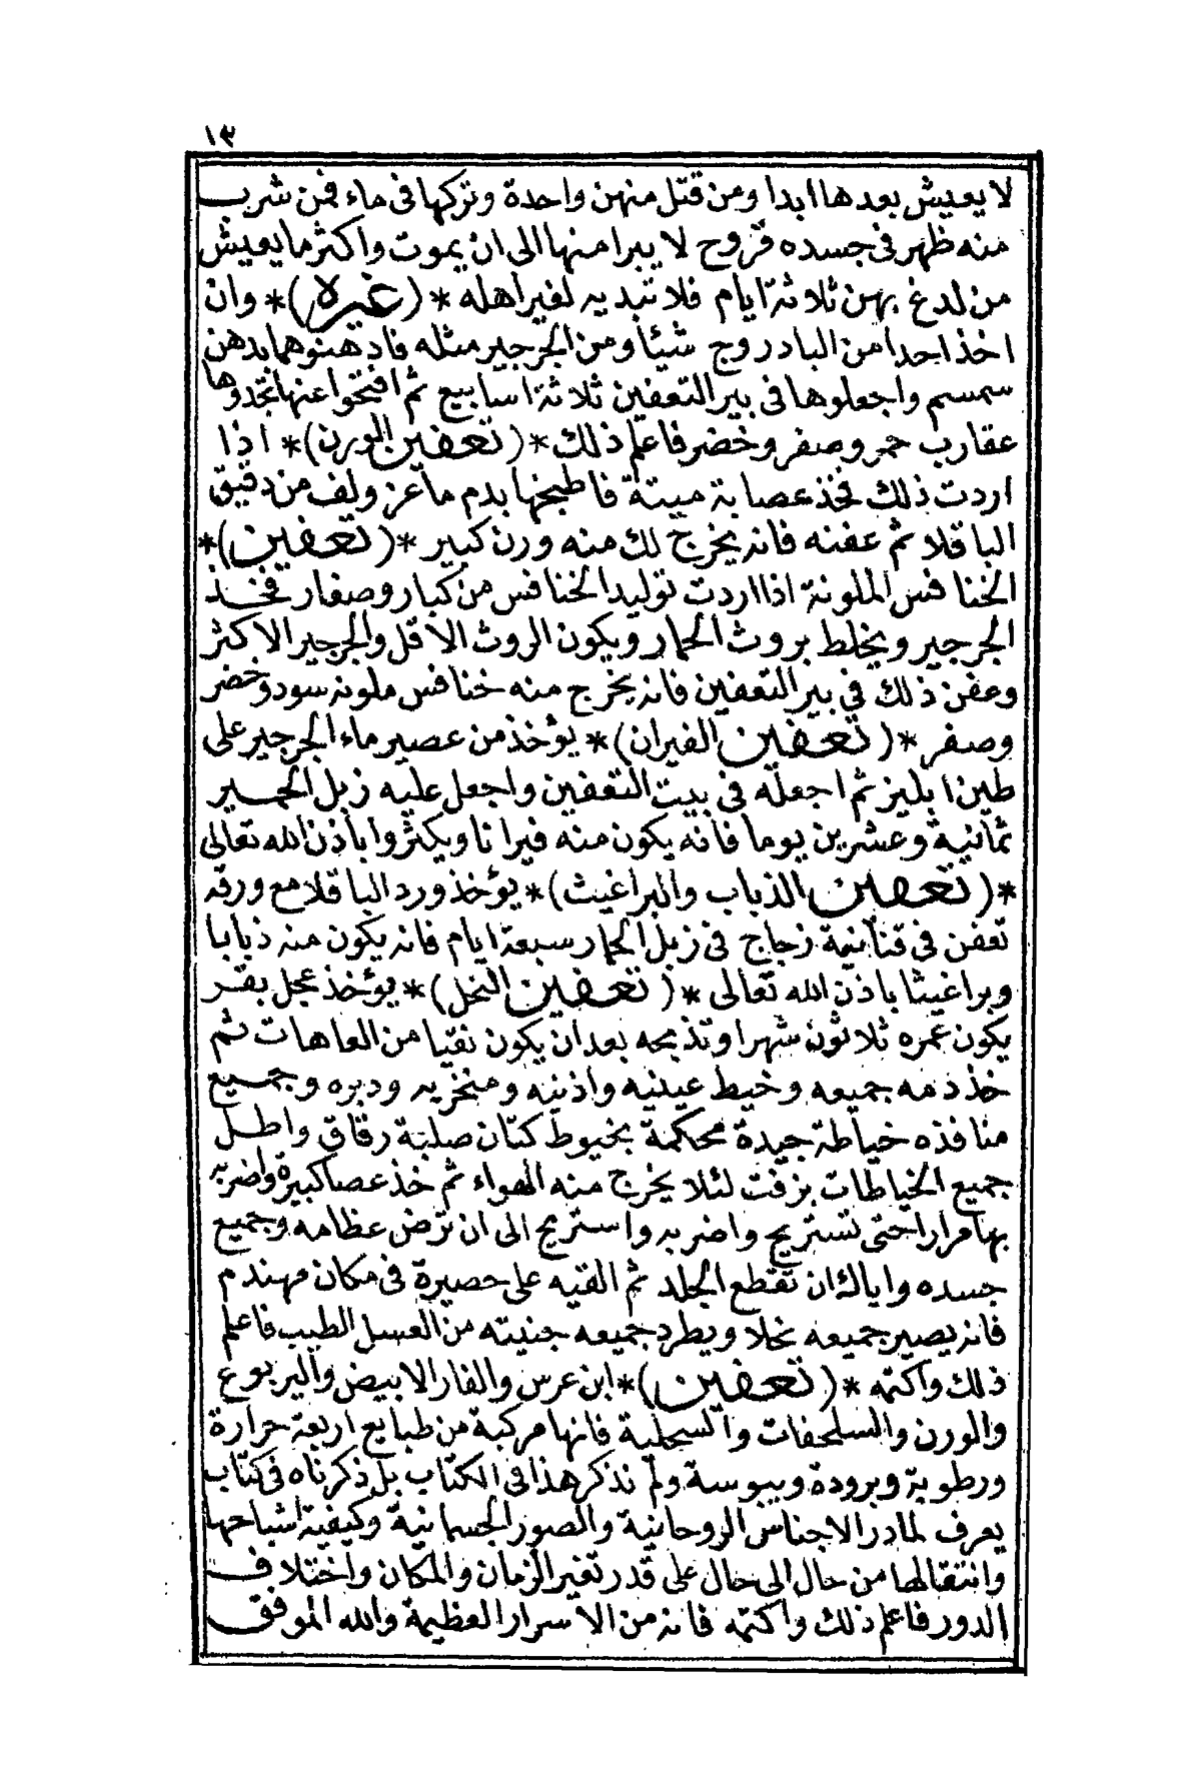 ١٣
لا يعيش بعدها ابدا ومن قتل منهن واحدة وتركها فى ماء فمن شرب
منه ظهر فى جسده قروح لا يبرا منها الى ان يموت واكثر ما يعيش
من لدغ بهن ثلاثة ايام فلا تبديه لغير اهله *(غيره)* وان
اخذ احدا من البادروج شيئا ومن الجرجير مثله فادهنوهما بدهن
سمسم واجعلوها فى بير التعفين ثلاثة اسابيع ثم افتحوا عنها تجدوها
عقارب حمر وصفر وخضر فاعلم ذلك *(تعفين الورن)* اذا
اردت ذلك فخذ عصابة ميتة فاطبخها بدم ماعز ولف من دقيق
الباقلا ثم عفنه فانه يخرج لك منه ورن كبير *(تعفين)*
الخنافس الملونة اذا اردت توليد الخنافس من كبار وصغار فخذ
الجرجير ويخلط بروث الحمار ويكون الروث الاقل والجرجير الاكثر
وعفن ذلك في بير التعفين فانه يخرج منه خنافس ملونه سود وخضر
وصفر *(تعفين الفيران)* يؤخذ من عصير ماء الجرجير على
طين ابليز ثم اجعله فى بيت التعفين واجعل عليه زبل الحمير
ثمانية وعشرين يوما فانه يكون منه فيرانا ويكثروا بأذن الله تعالى
*(تعفين الذباب والبراغيث)* يؤخذ ورد الباقلا مع ورقه
تعفن فى قنانية زجاج فى زبل الحمار سبعة ايام فانه يكون منه ذبابا
وبراغيثا باذن الله تعالى *(تعفين النحل)* يؤخذ عجل بقر
يكون عمره ثلاثون شهرا وتذبحه بعد ان يكون نقيا من العاهات ثم
خذ دمه جميعه وخيط عينيه واذنيه ومنخريه ودبره وجميع
منافذه خياطة جيدة محكمة بخيوط كتان صلبة رقاق واطل
جميع الخياطات بزفت لئلا يخرج منه الهواء ثم خذ عصا كبيرة واضربه
بها مرارا حتى تستريح واضربه واستريح الى ان ترض عظامه وجميع
جسده واياك ان تقطع الجلد ثم القيه على حصيرة فى مكان مهندم
فانه يصير جميعه نحلا ويطرد جميعه جنيته من العسل الطيب فاعلم
ذلك واكتمه *(تعفين)* ابن عرس والفار الابيض واليربوع
والورن والسلحفات والسحلية فانها مركبة من طبايع اربعة حرارة
ورطوبة وبرودة ويبوسة ولم نذكر هذا فى الكتاب بل ذكرناه فى كتاب
يعرف لمادر الاجناس الروحانية والصور الجسمانية وكيفية اشباحها
وانتقالها من حال الى حال على قدر تغير الزمان والمكان واختلاف
الدور فاعلم ذلك واكتمه فانه من الاسرار العظيمة والله الموفق